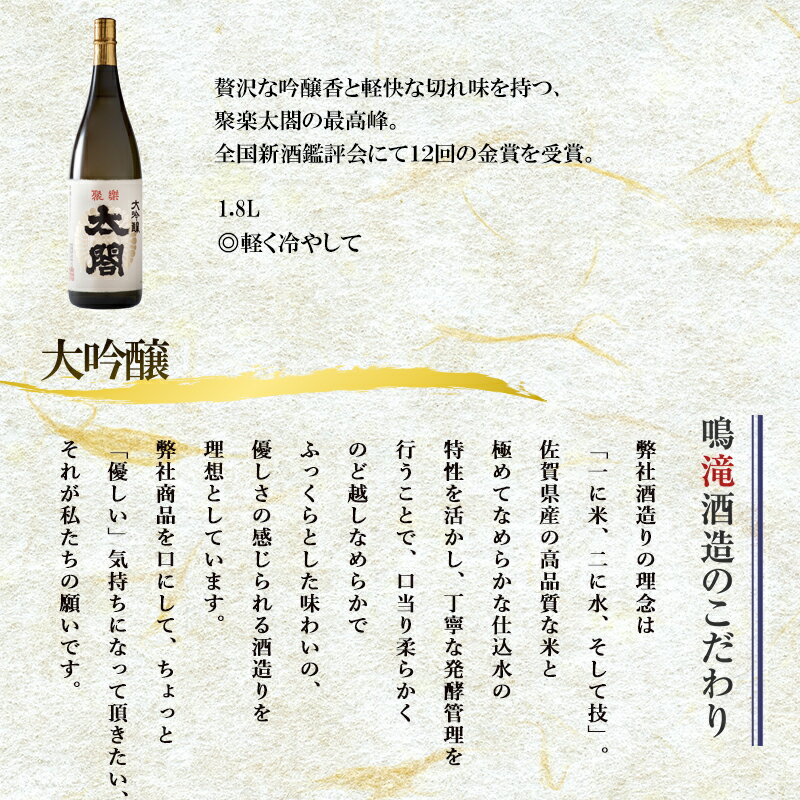 贅沢な吟醸香と軽快な切れ味を持つ、
聚楽太閤の最高峰。
全国新酒鑑評会にて12回の金賞を受賞。
1.8L
◎軽く冷やして
聚楽
大吟醸
太閤
大吟醸
鳴滝酒造のこだわり
弊社酒造りの理念は
「一に米、二に水、そして技」。
佐賀県産の高品質な米と
極めてなめらかな仕込水の
特性を活かし、丁寧な発酵管理を
行うことで、口当り柔らかく
のど越しなめらかで
ふっくらとした味わいの、
優しさの感じられる酒造りを
理想としています。
弊社商品を口にして、ちょっと
「優しい」気持ちになって頂きたい、
それが私たちの願いです。